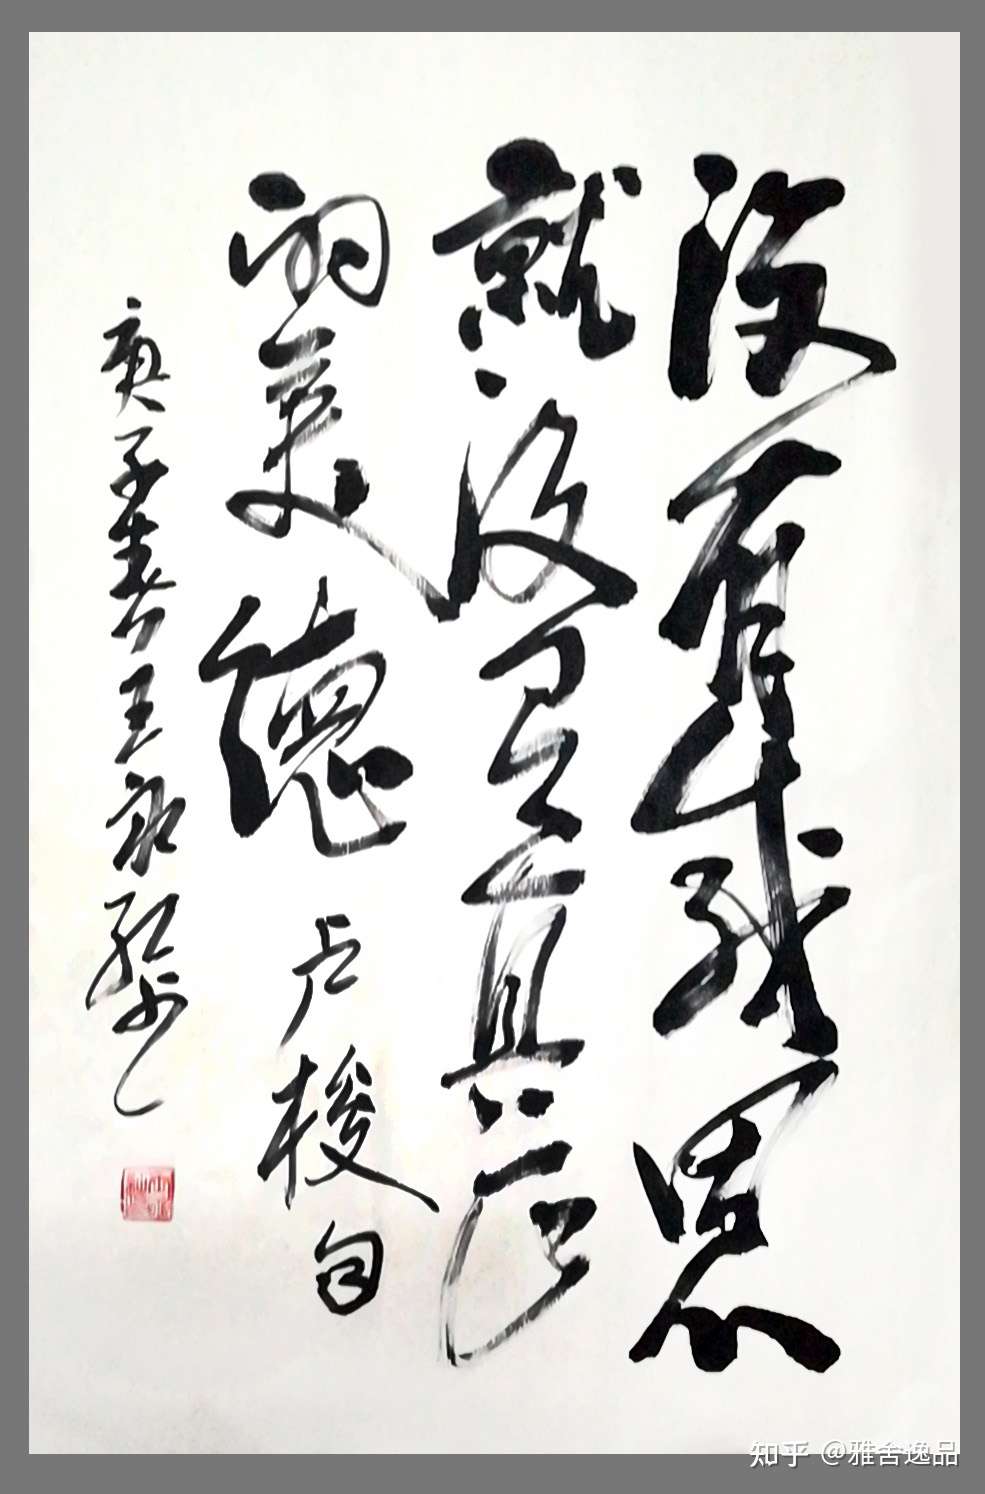 没有感恩
就没有真正
的美德 卢梭句
庚子春 王永
知乎 @雅舍逸品